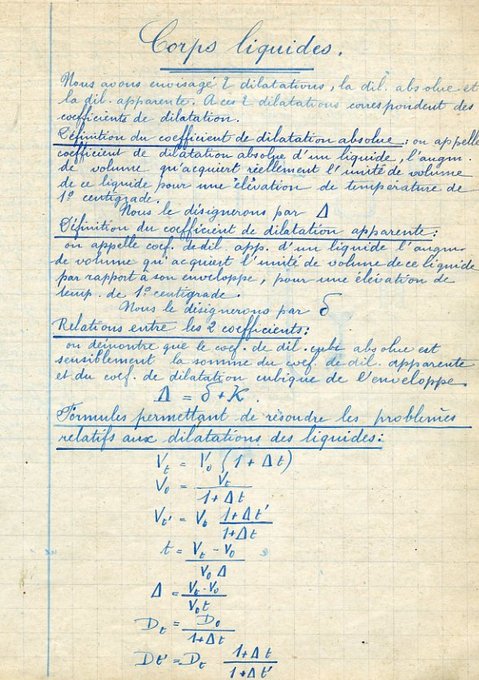 Corps liquides.
Nous avons envisagé 2 dilatations, la dil. absolue et
la dil. apparente. A ces 2 dilatations correspondent des
coefficients de dilatation.
Définition du coefficient de dilatation absolue: on appelle
coefficient de dilatation absolue d'un liquide, l'augm.
de volume qu'acquiert réellement l'unité de volume
de ce liquide pour une élévation de température de
1° centigrade.
Nous le désignerons par Δ
Définition du coefficient de dilatation apparente:
on appelle coef. de dil. app. d'un liquide l'augm.
de volume qu'acquiert l'unité de volume de ce liquide
par rapport à son enveloppe, pour une élévation de
temp. de 1° centigrade.
Nous le désignerons par δ
Relations entre les 2 coefficients:
on démontre que le coef. de dil. absolue est
sensiblement la somme du coef. de dil. apparente
et du coef. de dilatation cubique de l'enveloppe.
Δ = δ + K.
Formules permettant de résoudre les problèmes
relatifs aux dilatations des liquides:
Vt = V0 (1 + Δt)
V0 = Vt / (1 + Δt)
Vt' = Vt (1 + Δt') / (1 + Δt)
t = (Vt - V0) / (V0 Δ)
Δ = (Vt - V0) / (V0 t)
Dt = D0 / (1 + Δt)
Dt' = Dt (1 + Δt) / (1 + Δt')